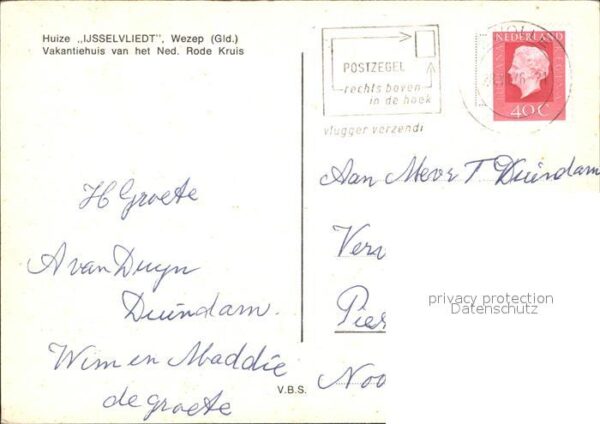 Huize „IJSSELVLIEDT", Wezep (Gld.)
Vakantiehuis van het Ned. Rode Kruis
POSTZEGEL
rechts boven
in de hoek
vlugger verzendi
NEDERLAND
40C
Aan Mevr T Duindam
H Groete
A van Duyn
Duindam.
Wim en Maddie
de groete
Verv
Pier
Noo
privacy protection
Datenschutz
V.B.S.